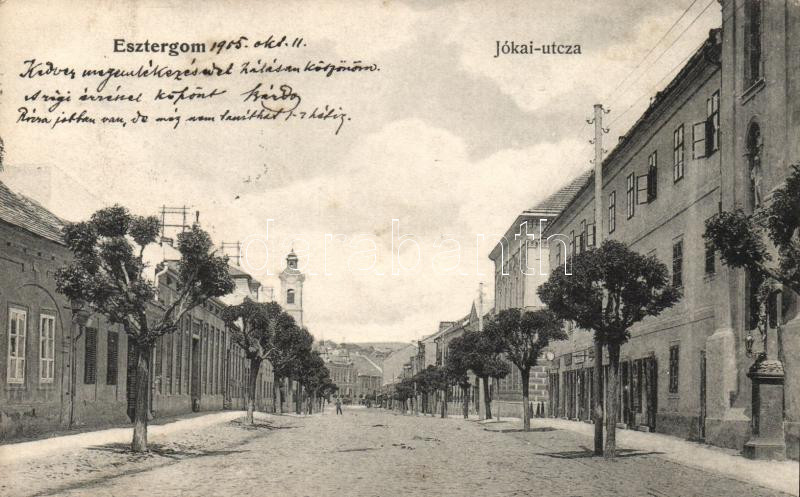 Esztergom 1905. okt. 11.
Jókai-utcza
Kedves megemlékezésedet hálásan köszönöm.
A régi érzéssel köszönt
Rózsa jobban van, de még nem taníthat 1-2 hétig.
darabanth.com